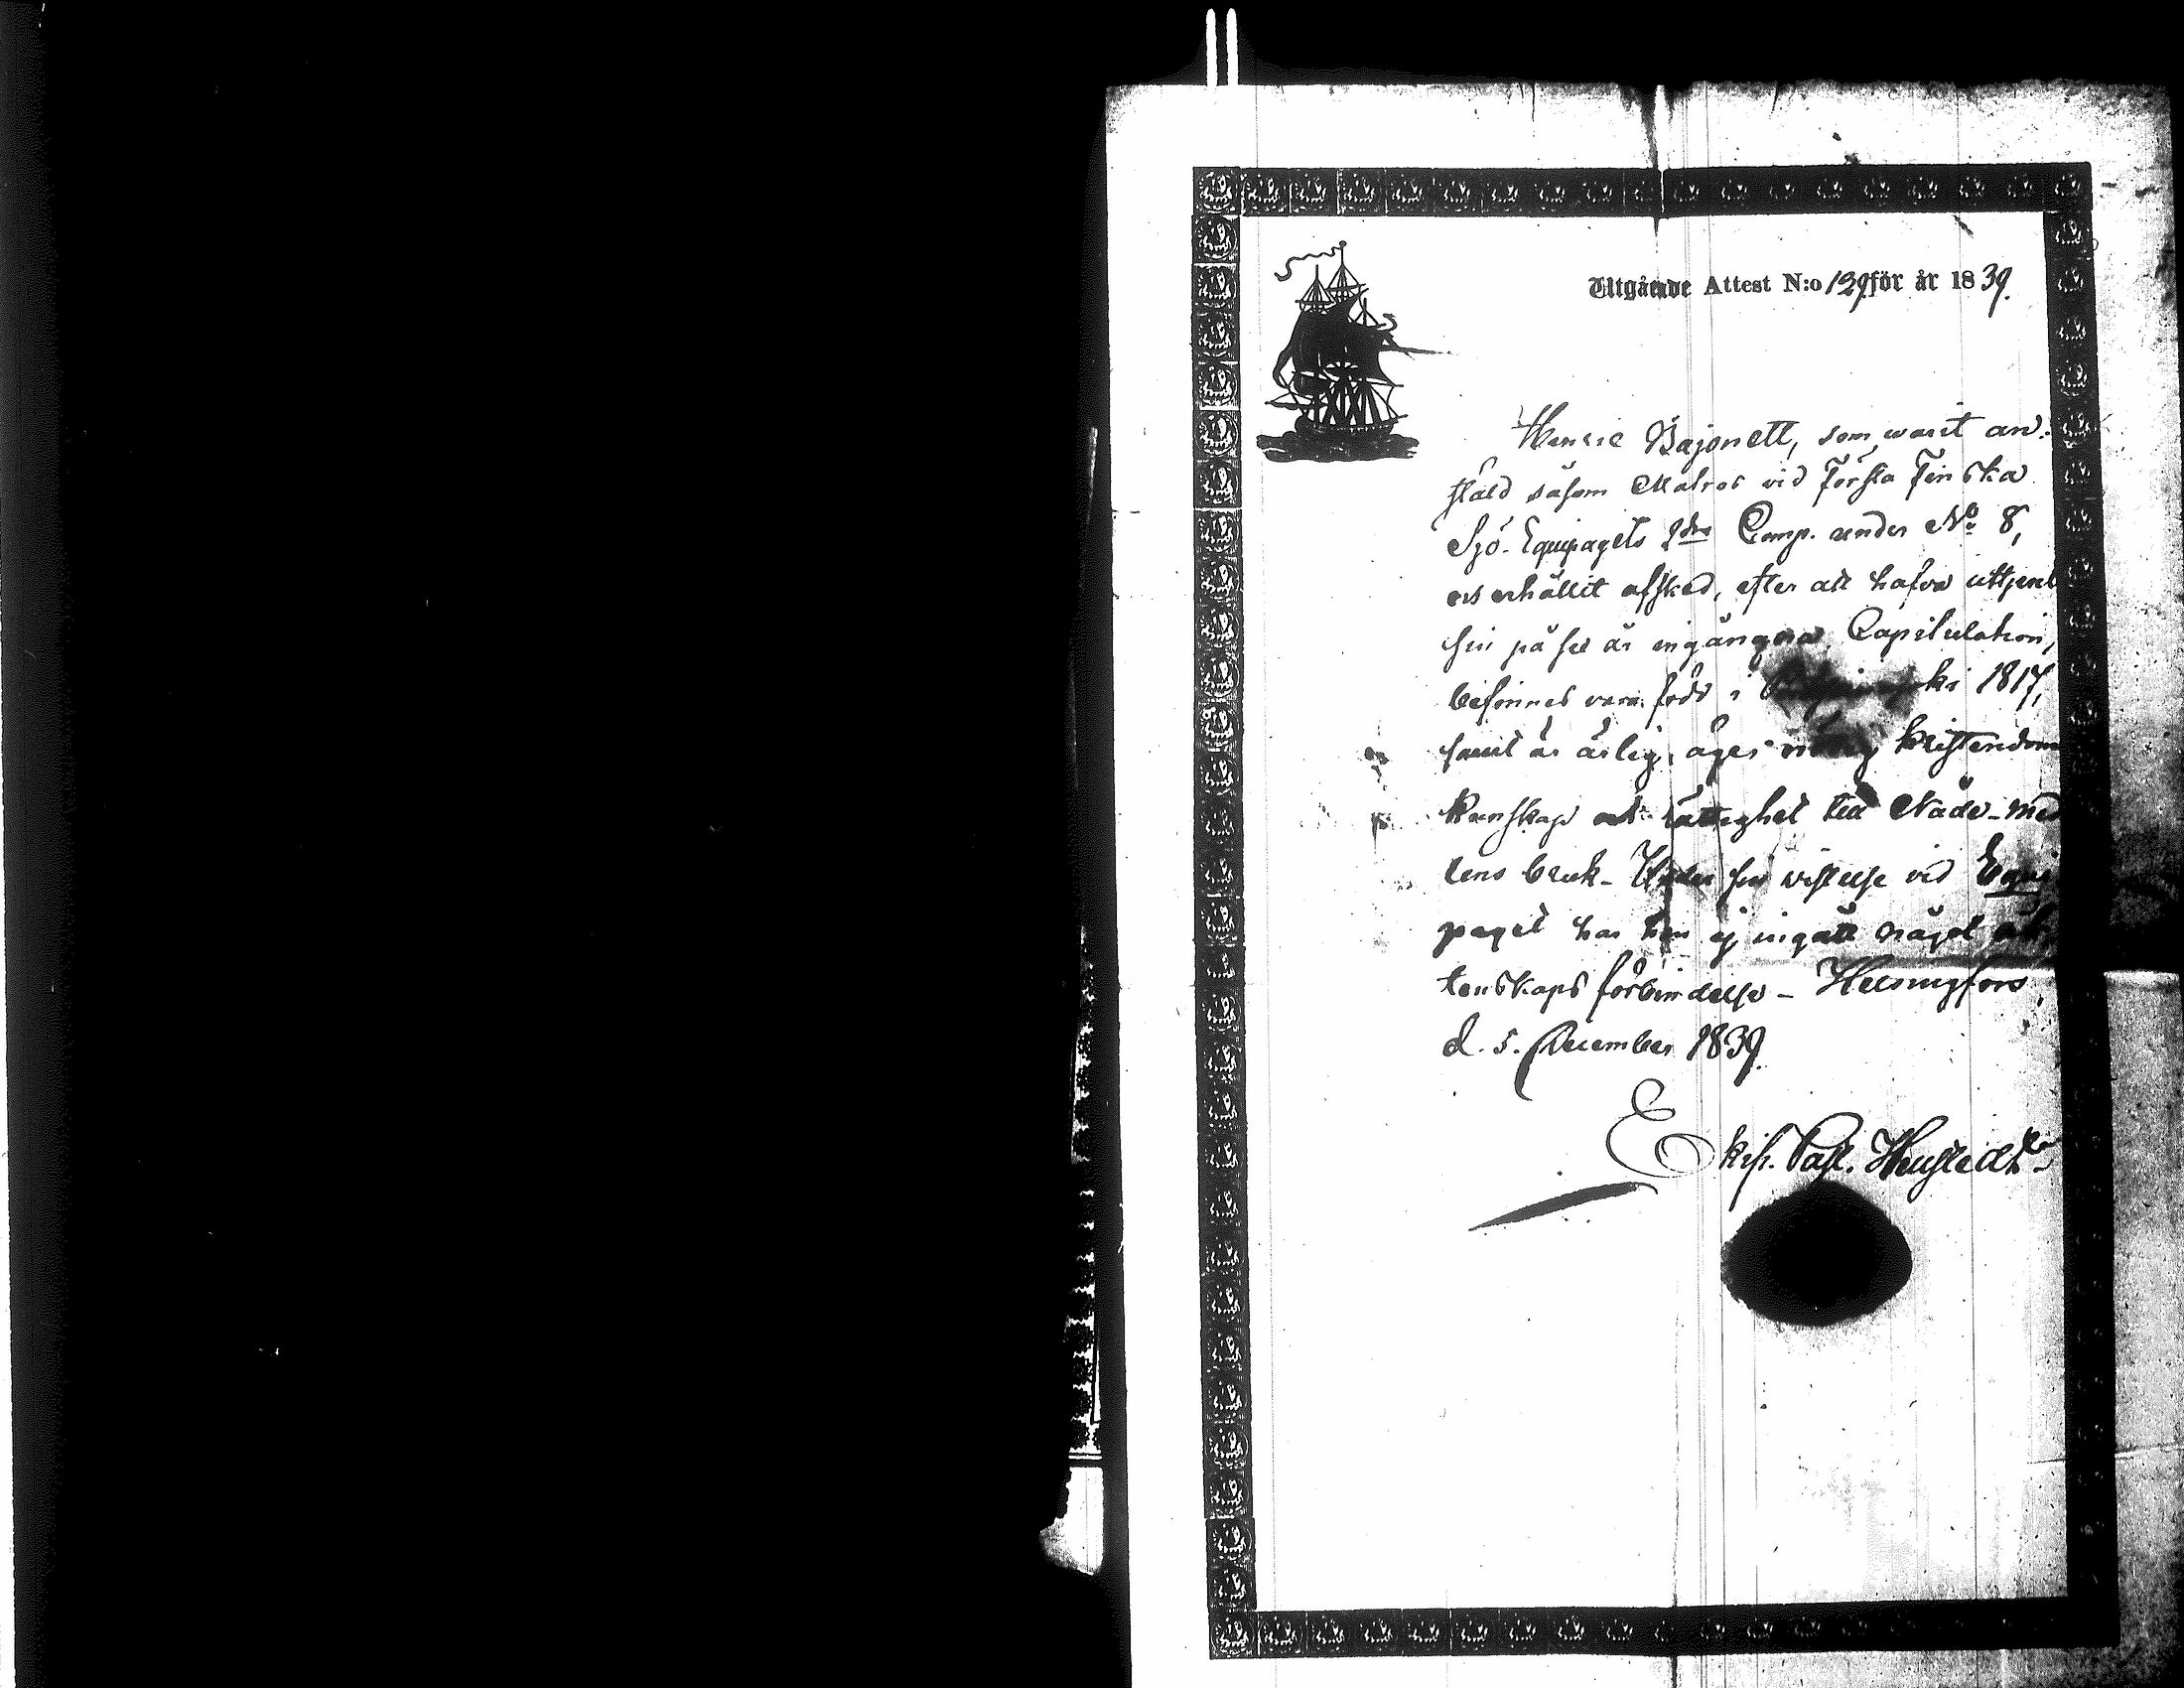 Utgående Attest N:o 129 för år 1839.
Henric Bajonett, som warit an-
stäld såsom Matros vid Första Finska
Sjö-Equipagets 2dra Comp. under No 8,
erhållit afsked, efter att hafva uttjent
sin på sex år ingångna Capitulation,
befinnes vara född i 1817,
samt är ärlig, äger nöjlig kristendoms
kunskap och rättighet till Nåde-med
lens bruk - Under sin vistelse vid Equi
paget har han ej ingått något äk-
tenskaps förbindelse - Helsingfors,
d. 5. December 1839.